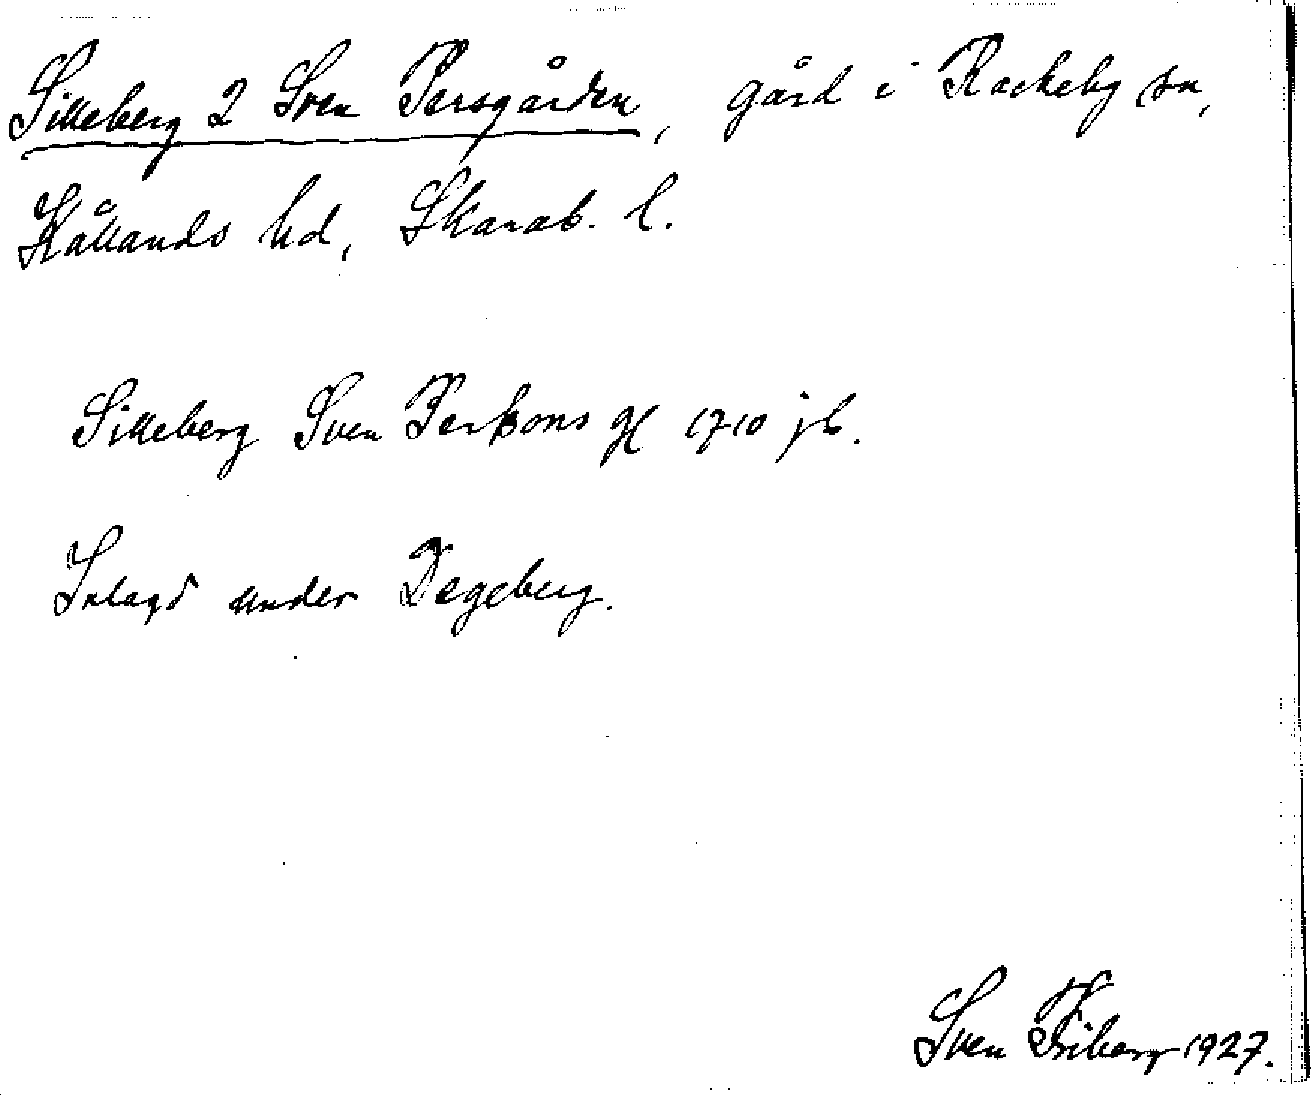 Silleberg 2 Sven Persgården, gård i Rackeby sn,
Kållands hd, Skarab. l.
Silleberg Sven Perßons g 1710 jb.
Inlagd under Degeberg.
Sven Friberg 1927.